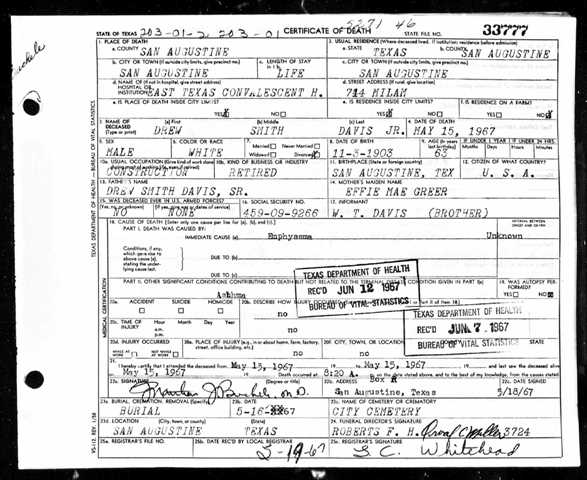 5271 46
STATE OF TEXAS 203-01-2 203-01 CERTIFICATE OF DEATH STATE FILE NO. 33777
1. PLACE OF DEATH 2. USUAL RESIDENCE (Where deceased lived. If institution: residence before admission)
a. COUNTY SAN AUGUSTINE a. STATE TEXAS b. COUNTY SAN AUGUSTINE
b. CITY OR TOWN (If outside city limits, give precinct no.) c. LENGTH OF STAY c. CITY OR TOWN (If outside city limits, give precinct no.)
SAN AUGUSTINE LIFE SAN AUGUSTINE
d. NAME OF (If not in hospital, give street address) d. STREET ADDRESS (If rural, give location)
HOSPITAL OR INSTITUTION EAST TEXAS CONVALESCENT H. 714 MILAM
e. IS PLACE OF DEATH INSIDE CITY LIMITS? e. IS RESIDENCE INSIDE CITY LIMITS? f. IS RESIDENCE ON A FARM?
YES NO YES NO YES NO
3. NAME OF DECEASED (Type or print) (a) First (b) Middle (c) Last 4. DATE OF DEATH
DREW SMITH DAVIS JR. MAY 15, 1967
5. SEX 6. COLOR OR RACE 7. Married Never Married Widowed Divorced 8. DATE OF BIRTH 9. AGE IF UNDER 1 YEAR IF UNDER 24 HRS.
MALE WHITE 11-3-1903 63
10a. USUAL OCCUPATION 10b. KIND OF BUSINESS OR INDUSTRY 11. BIRTHPLACE (State or foreign country) 12. CITIZEN OF WHAT COUNTRY?
CONSTRUCTION RETIRED SAN AUGUSTINE, TEX U. S. A.
13. FATHER'S NAME 14. MOTHER'S MAIDEN NAME
DREW SMITH DAVIS, SR. EFFIE MAE GREER
15. WAS DECEASED EVER IN U.S. ARMED FORCES? 16. SOCIAL SECURITY NO. 17. INFORMANT
NO NONE 459-09-9266 W. T. DAVIS (BROTHER)
18. CAUSE OF DEATH (Enter only one cause per line for (a), (b), and (c).) INTERVAL BETWEEN ONSET AND DEATH
PART I. DEATH WAS CAUSED BY:
IMMEDIATE CAUSE (a) Emphysema Unknown
Conditions, if any, which gave rise to above cause (a), stating the underlying cause last.
DUE TO (b)
DUE TO (c)
PART II. OTHER SIGNIFICANT CONDITIONS CONTRIBUTING TO DEATH BUT NOT RELATED TO THE TERMINAL CONDITION GIVEN IN PART I(a) 19. WAS AUTOPSY PERFORMED?
Asthma YES NO
TEXAS DEPARTMENT OF HEALTH
REC'D JUN 12 1967
BUREAU OF VITAL STATISTICS
20a. ACCIDENT SUICIDE HOMICIDE 20b. DESCRIBE HOW INJURY OCCURRED
no no
TEXAS DEPARTMENT OF HEALTH
REC'D JUN 7 1967
BUREAU OF VITAL STATISTICS
20c. TIME OF INJURY Hour Month Day Year a.m. p.m.
20d. INJURY OCCURRED WHILE AT WORK NOT WHILE AT WORK 20e. PLACE OF INJURY (e.g., in or about home, farm, factory, street, office building, etc.) 20f. CITY, TOWN, OR LOCATION COUNTY STATE
no no
21. I hereby certify that I attended the deceased from May 15, 1967 to May 15, 1967 and last saw the deceased alive
on May 15, 1967 Death occurred at 8:20 A. m. on the date stated above, and to the best of my knowledge, from the causes stated.
22a. SIGNATURE (Degree or title) 22b. ADDRESS Box 22c. DATE SIGNED
M.D. San Augustine, Texas 5/18/67
23a. BURIAL, CREMATION, REMOVAL (Specify) 23b. DATE 23c. NAME OF CEMETERY OR CREMATORY
BURIAL 5-16-67 CITY CEMETERY
23d. LOCATION (City, town, or county) (State) 24. FUNERAL DIRECTOR'S SIGNATURE
SAN AUGUSTINE TEXAS ROBERTS F. H. 3724
25a. REGISTRAR'S FILE NO. 25b. DATE REC'D BY LOCAL REGISTRAR 25c. REGISTRAR'S SIGNATURE
5-19-67 Whitehead
TEXAS DEPARTMENT OF HEALTH — BUREAU OF VITAL STATISTICS
MEDICAL CERTIFICATION
VS-112, REV. 1/58